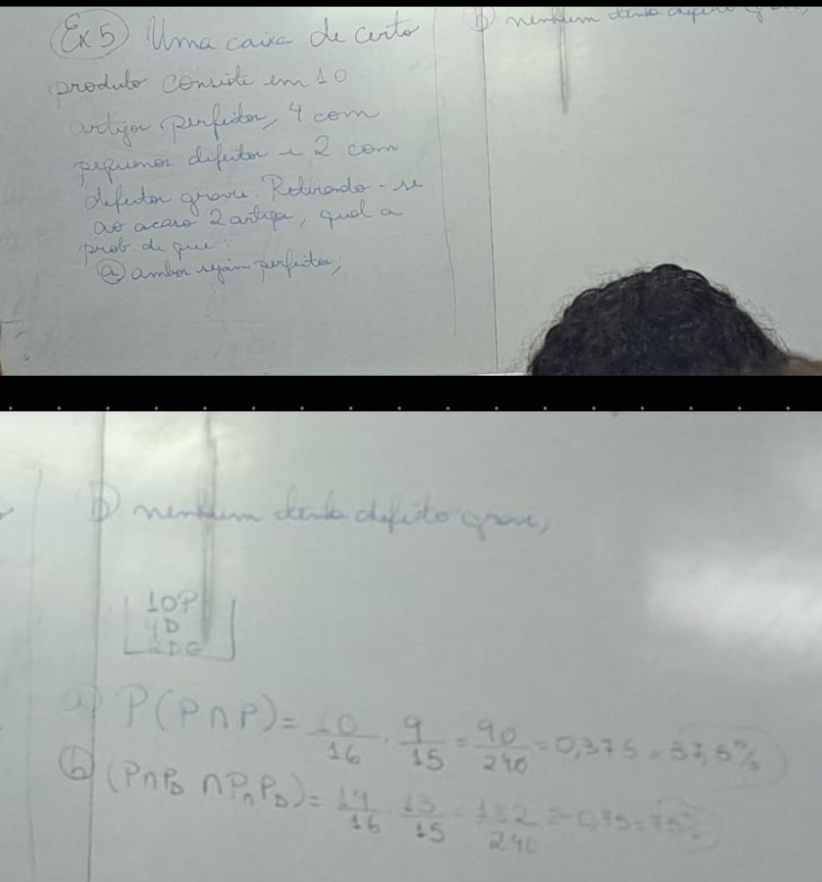 Ex 5 Uma caixa de certo
produto consiste em 10
artigos perfeitos, 4 com
pequenos defeitos e 2 com
defeitos graves. Retirando-se
ao acaso 2 artigos, qual a
prob. de que:
a) ambos sejam perfeitos;
b) nenhum tenha defeito grave,
b) nenhum tenha defeito grave,
10P
4D
2DG
a) P(P∩P) = 10/16 . 9/15 = 90/240 = 0,375 = 37,5%
b) (P∩P_D ∩ P∩P_D) = 14/16 . 13/15 = 182/240 = 0,75 = 75%